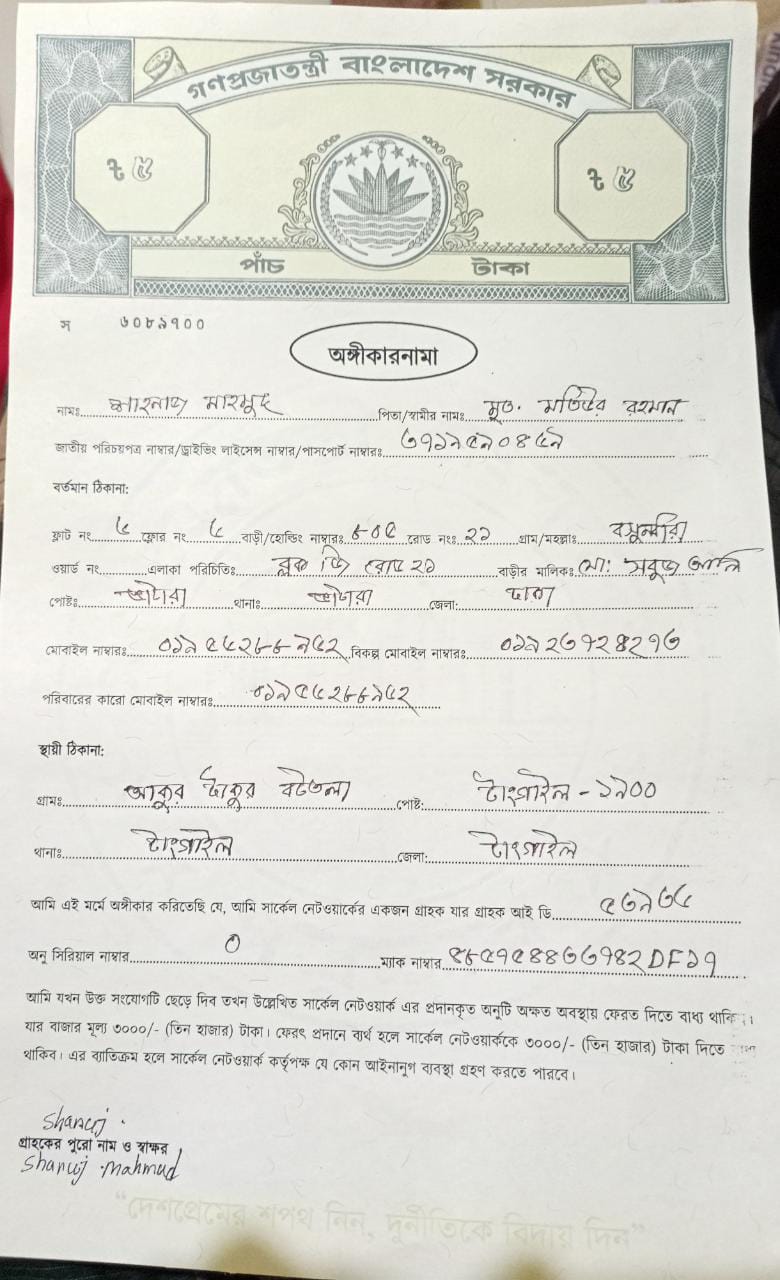 গণপ্রজাতন্ত্রী বাংলাদেশ সরকার
৳ ৫ ৳ ৫
পাঁচ টাকা
স ৬০৮৯৭০০
অঙ্গীকারনামা
নামঃ শাহনাজ মাহমুদ পিতা/স্বামীর নামঃ মৃত. মতিউর রহমান
জাতীয় পরিচয়পত্র নাম্বার/ড্রাইভিং লাইসেন্স নাম্বার/পাসপোর্ট নাম্বারঃ
বর্তমান ঠিকানা:
ফ্লাট নং ফ্লোর নং বাড়ী/হোল্ডিং নাম্বারঃ রোড নংঃ ২১ গ্রাম/মহল্লাঃ বসুন্ধরা
ওয়ার্ড নং এলাকা পরিচিতিঃ ব্লক ডি রোড ২১ বাড়ীর মালিকঃ মো: সবুজ আলি
পোষ্টঃ ভাটারা থানাঃ ভাটারা জেলা: ঢাকা
মোবাইল নাম্বারঃ ০১৯৫৫২৮৮৯৫২ বিকল্প মোবাইল নাম্বারঃ ০১৯২৩৭২৪২৭৩
পরিবারের কারো মোবাইল নাম্বারঃ ০১৯৫৫২৮৮৯৫২
স্থায়ী ঠিকানা:
গ্রামঃ আকুর টাকুর বটতলা পোষ্ট: টাংগাইল - ১৯০০
থানাঃ টাংগাইল জেলা: টাংগাইল
আমি এই মর্মে অঙ্গীকার করিতেছি যে, আমি সার্কেল নেটওয়ার্কের একজন গ্রাহক যার গ্রাহক আই ডি
অনু সিরিয়াল নাম্বার ০ ম্যাক নাম্বার
আমি যখন উক্ত সংযোগটি ছেড়ে দিব তখন উল্লেখিত সার্কেল নেটওয়ার্ক এর প্রদানকৃত অনুটি অক্ষত অবস্থায় ফেরত দিতে বাধ্য থাকিব।
যার বাজার মূল্য ৩০০০/- (তিন হাজার) টাকা। ফেরৎ প্রদানে ব্যর্থ হলে সার্কেল নেটওয়ার্ককে ৩০০০/- (তিন হাজার) টাকা দিতে
থাকিব। এর ব্যতিক্রম হলে সার্কেল নেটওয়ার্ক কর্তৃপক্ষ যে কোন আইনানুগ ব্যবস্থা গ্রহণ করতে পারবে।
Shanuj.
গ্রাহকের পুরো নাম ও স্বাক্ষর
Shanuj Mahmud
"দেশপ্রেমের শপথ নিন, দুর্নীতিকে বিদায় দিন"